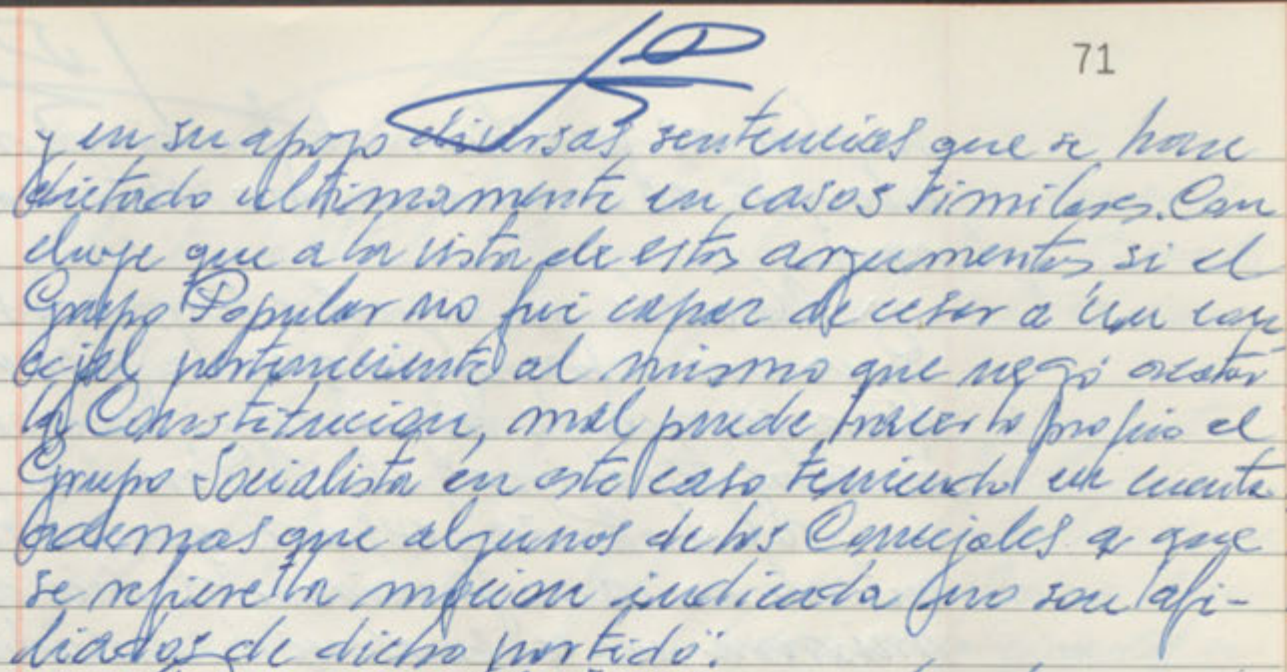 71
y en su apoyo diversas sentencias que se han
dictado ultimamente en casos similares. Con
cluye que a la vista de estos argumentos si el
Grupo Popular no fue capaz de cesar a un con
cejal perteneciente al mismo que negó acatar
la Constitucion, mal puede hacer lo propio el
Grupo Socialista en este caso teniendo en cuenta
ademas que algunos de los Concejales a que
se refiere la mocion indicada no son afi-
liados de dicho partido".